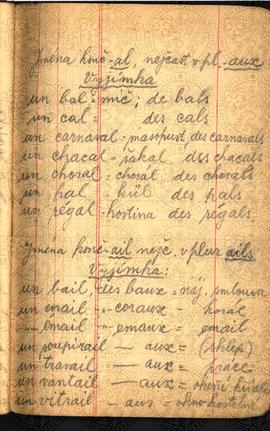 Jména konč-al, nejčast v pl. -aux
Vyjímka
un bal = míč, de bals
un cal = des cals
un carnaval = masopust, des carnavals
un chacal = šakal, des chacals
un choral = choral, des chorals
un pal = kůl des pals
un régal = hostina des régals
Jména konč-ail nejč. v plur ails
Vyjímka:
un bail, des baux = náj. smlouva
un corail -"- coraux - koral
-"- email -"- emaux = email
un soupirail — aux = (sklep)
un travail — aux = práce
un vantail — aux = okení křídlo
un vitrail — aux = okno kostelní